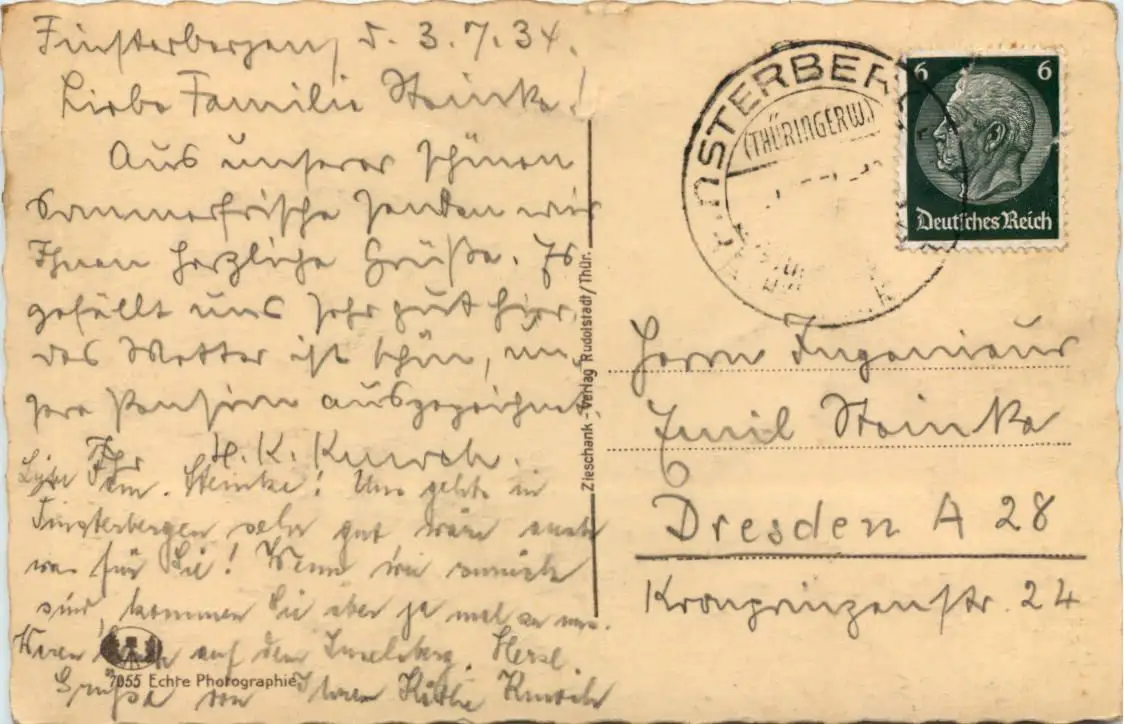 Finsterbergen, d. 3.7.34.
Liebe Familie Steinke!
Aus unserer schönen
Sommerfrische senden wir
Ihnen herzliche Grüße. Es
gefällt uns sehr gut hier,
das Wetter ist schön, un-
sere Pension ausgezeichnet.
Ihr H. K.
Fam. Steinke! Uns gehts in
Finsterbergen sehr gut wäre auch
was für Sie! Wenn wir zurück
sind, kommen Sie aber ja mal zu uns.
Waren auf dem Inselsberg. Herzl.
Grüße von Ihrer Käthe
7055 Echte Photographie
Zieschank - Verlag Rudolstadt/Thür.
FINSTERBERGEN
(THÜRINGERW.)
6 6
Deutsches Reich
Herrn Ingenieur
Emil Steinke
Dresden A 28
Kronprinzenstr. 24